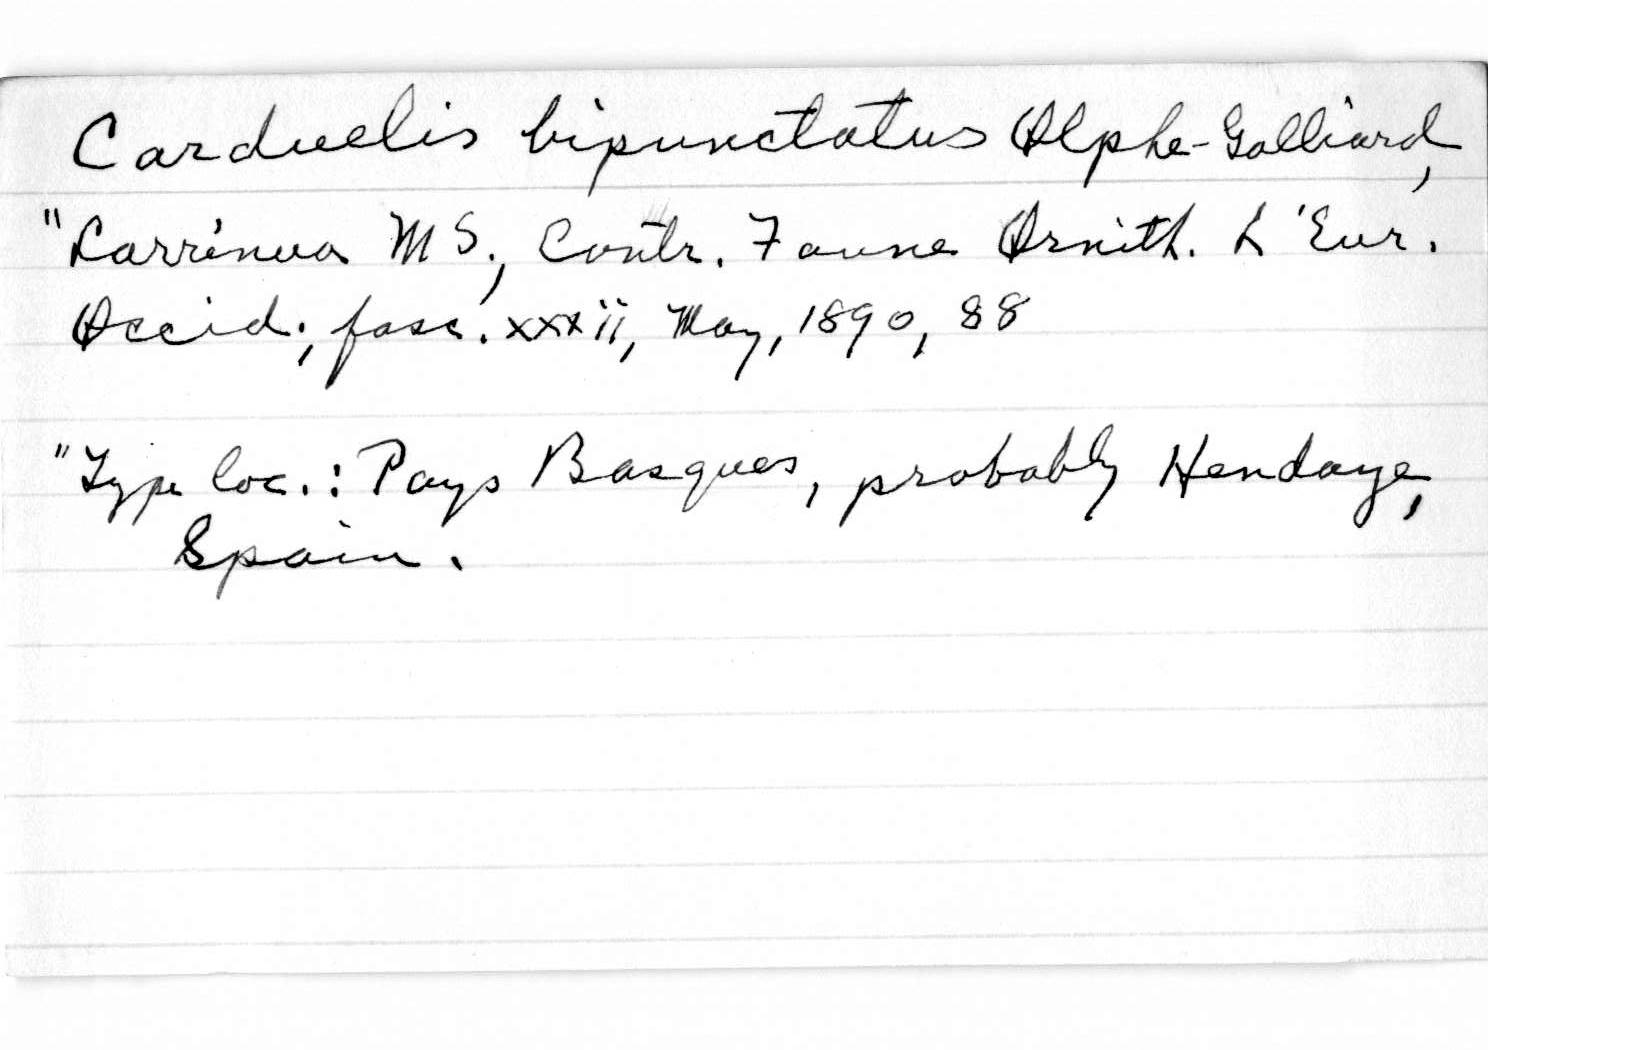 Carduelis bipunctatus Alphe-Galliard,
"Larrinua MS., Contr. Faune Ornith. L'Eur.
Occid., fasc. xxxii, May, 1890, 88
"Type loc.: Pays Basques, probably Hendaye,
Spain.